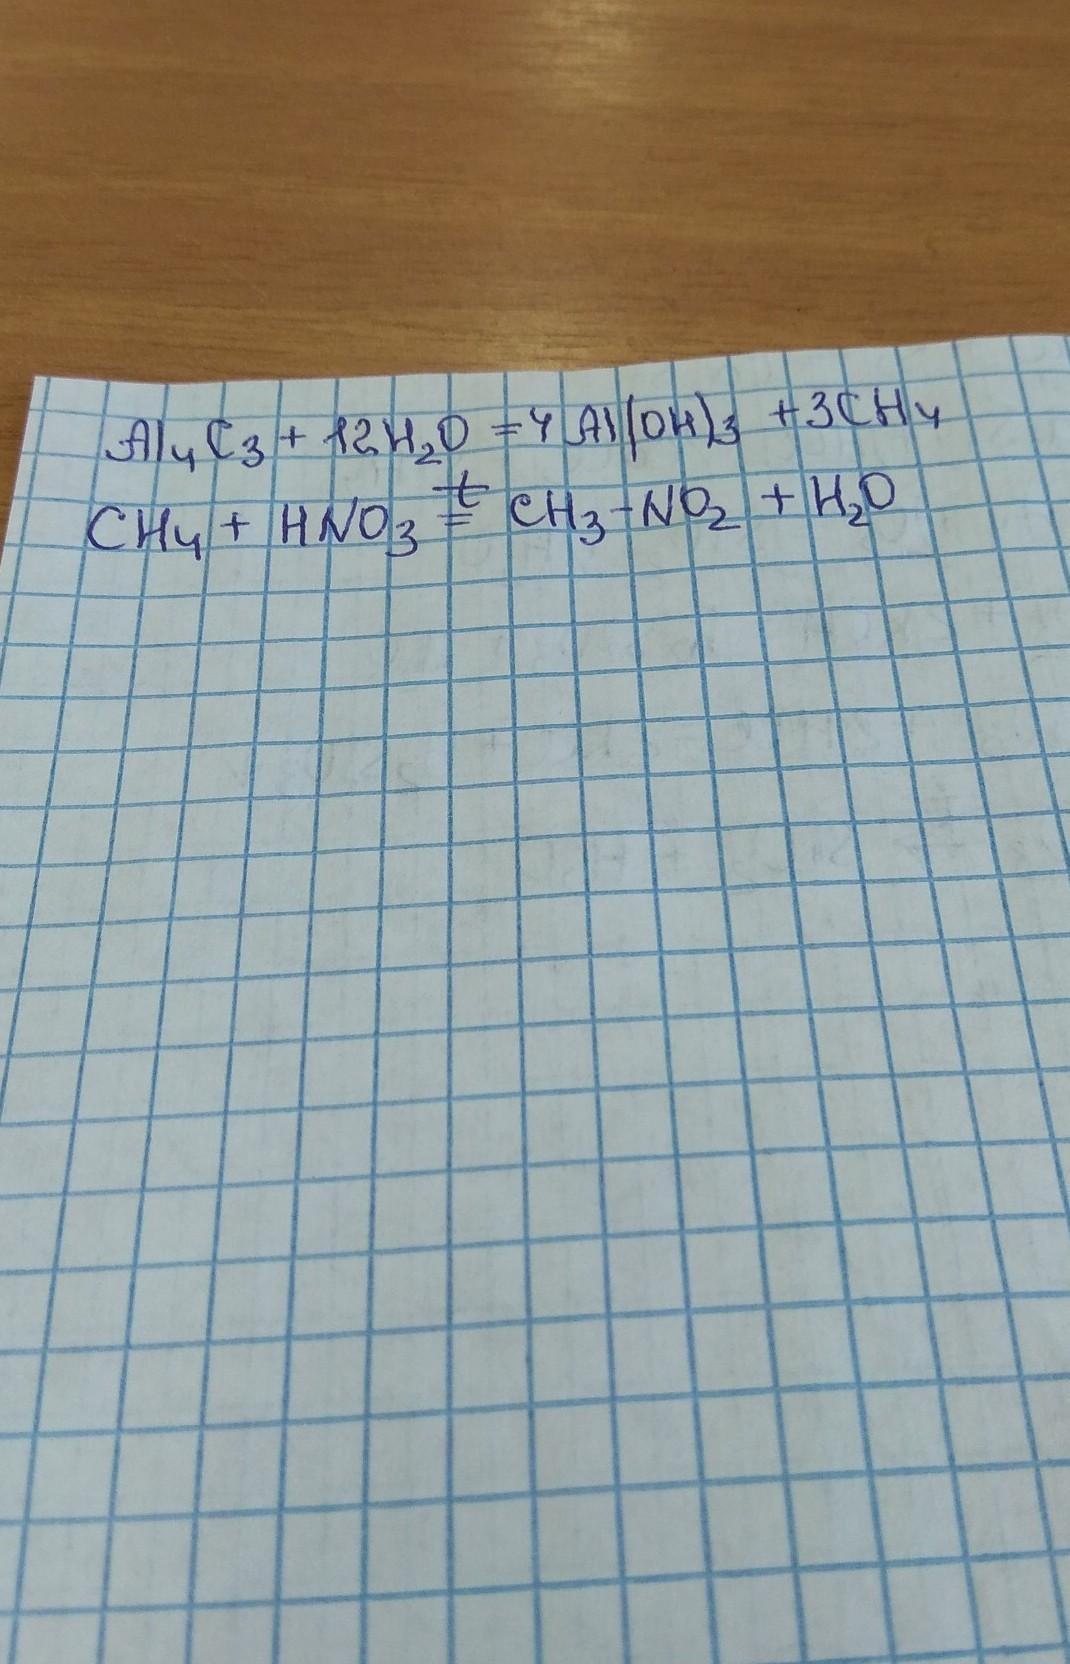 Al₄C₃ + 12H₂O = 4Al(OH)₃ + 3CH₄
CH₄ + HNO₃ =ᵗ CH₃-NO₂ + H₂O